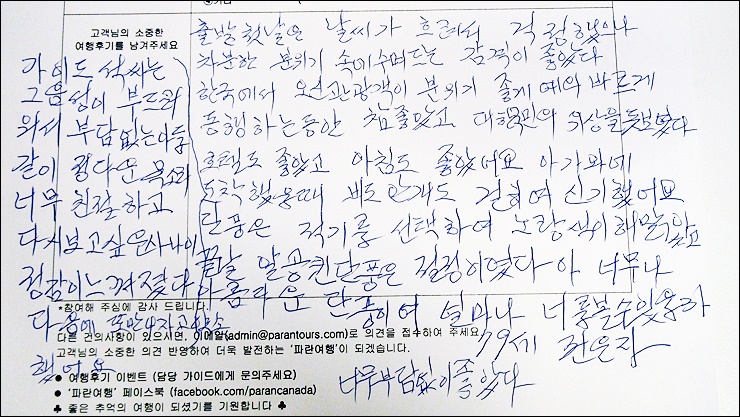 고객님의 소중한
여행후기를 남겨주세요
출발 첫날은 날씨가 흐려서 걱정했으나
차분한 분위기 속에 스며드는 감격이 좋았다
한국에서 오신 관광객이 분위기 좋게 예의 바르게
동행하는 동안 참 좋았고 대한국민의 위상을 돋보였다
호텔도 좋았고 아침도 좋았어요 아가와에
도착했을때 비도 안개도 걷히여 신기했어요
단풍은 적기를 선택하여 노랑색이 해맑았고
끝날 알공퀸 단풍은 절정이였다 아 너무나
아름다운 단풍이여 얼마나 너를 볼수있을까
79세 전은자
너무 부담없이 좋았다
가이드 석싸는
그음성이 부드러
와서 부담없는 아들
같이 정다운 목소리
너무 친절하고
다시보고 싶은 사나이
정감이 느껴졌다
다음에 또 만나자고
했어요
*참여해 주심에 감사 드립니다.
다른 건의사항이 있으시면, 이메일(admin@parantours.com)로 의견을 접수하여 주세요.
고객님의 소중한 의견 반영하여 더욱 발전하는 '파란여행'이 되겠습니다.
● 여행후기 이벤트 (담당 가이드에게 문의주세요)
● '파란여행' 페이스북 (facebook.com/parancanada)
♣ 좋은 추억의 여행이 되셨기를 기원합니다 ♣